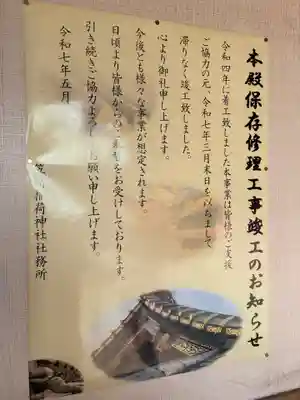 本殿保存修理工事竣工のお知らせ
令和四年に着工致しました本事業は皆様のご支援
ご協力の元、令和七年三月末日を以ちまして
滞りなく竣工致しました。
心より御礼申し上げます。
今後とも様々な事業が想定されます。
日頃より皆様からのご をお受けしております。
引き続きご協力よろ お願い申し上げます。
令和七年五月
稲荷神社社務所